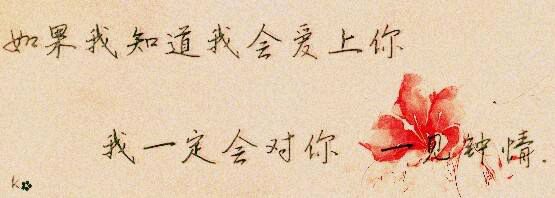 如果我知道我会爱上你
我一定会对你 一见钟情.
K